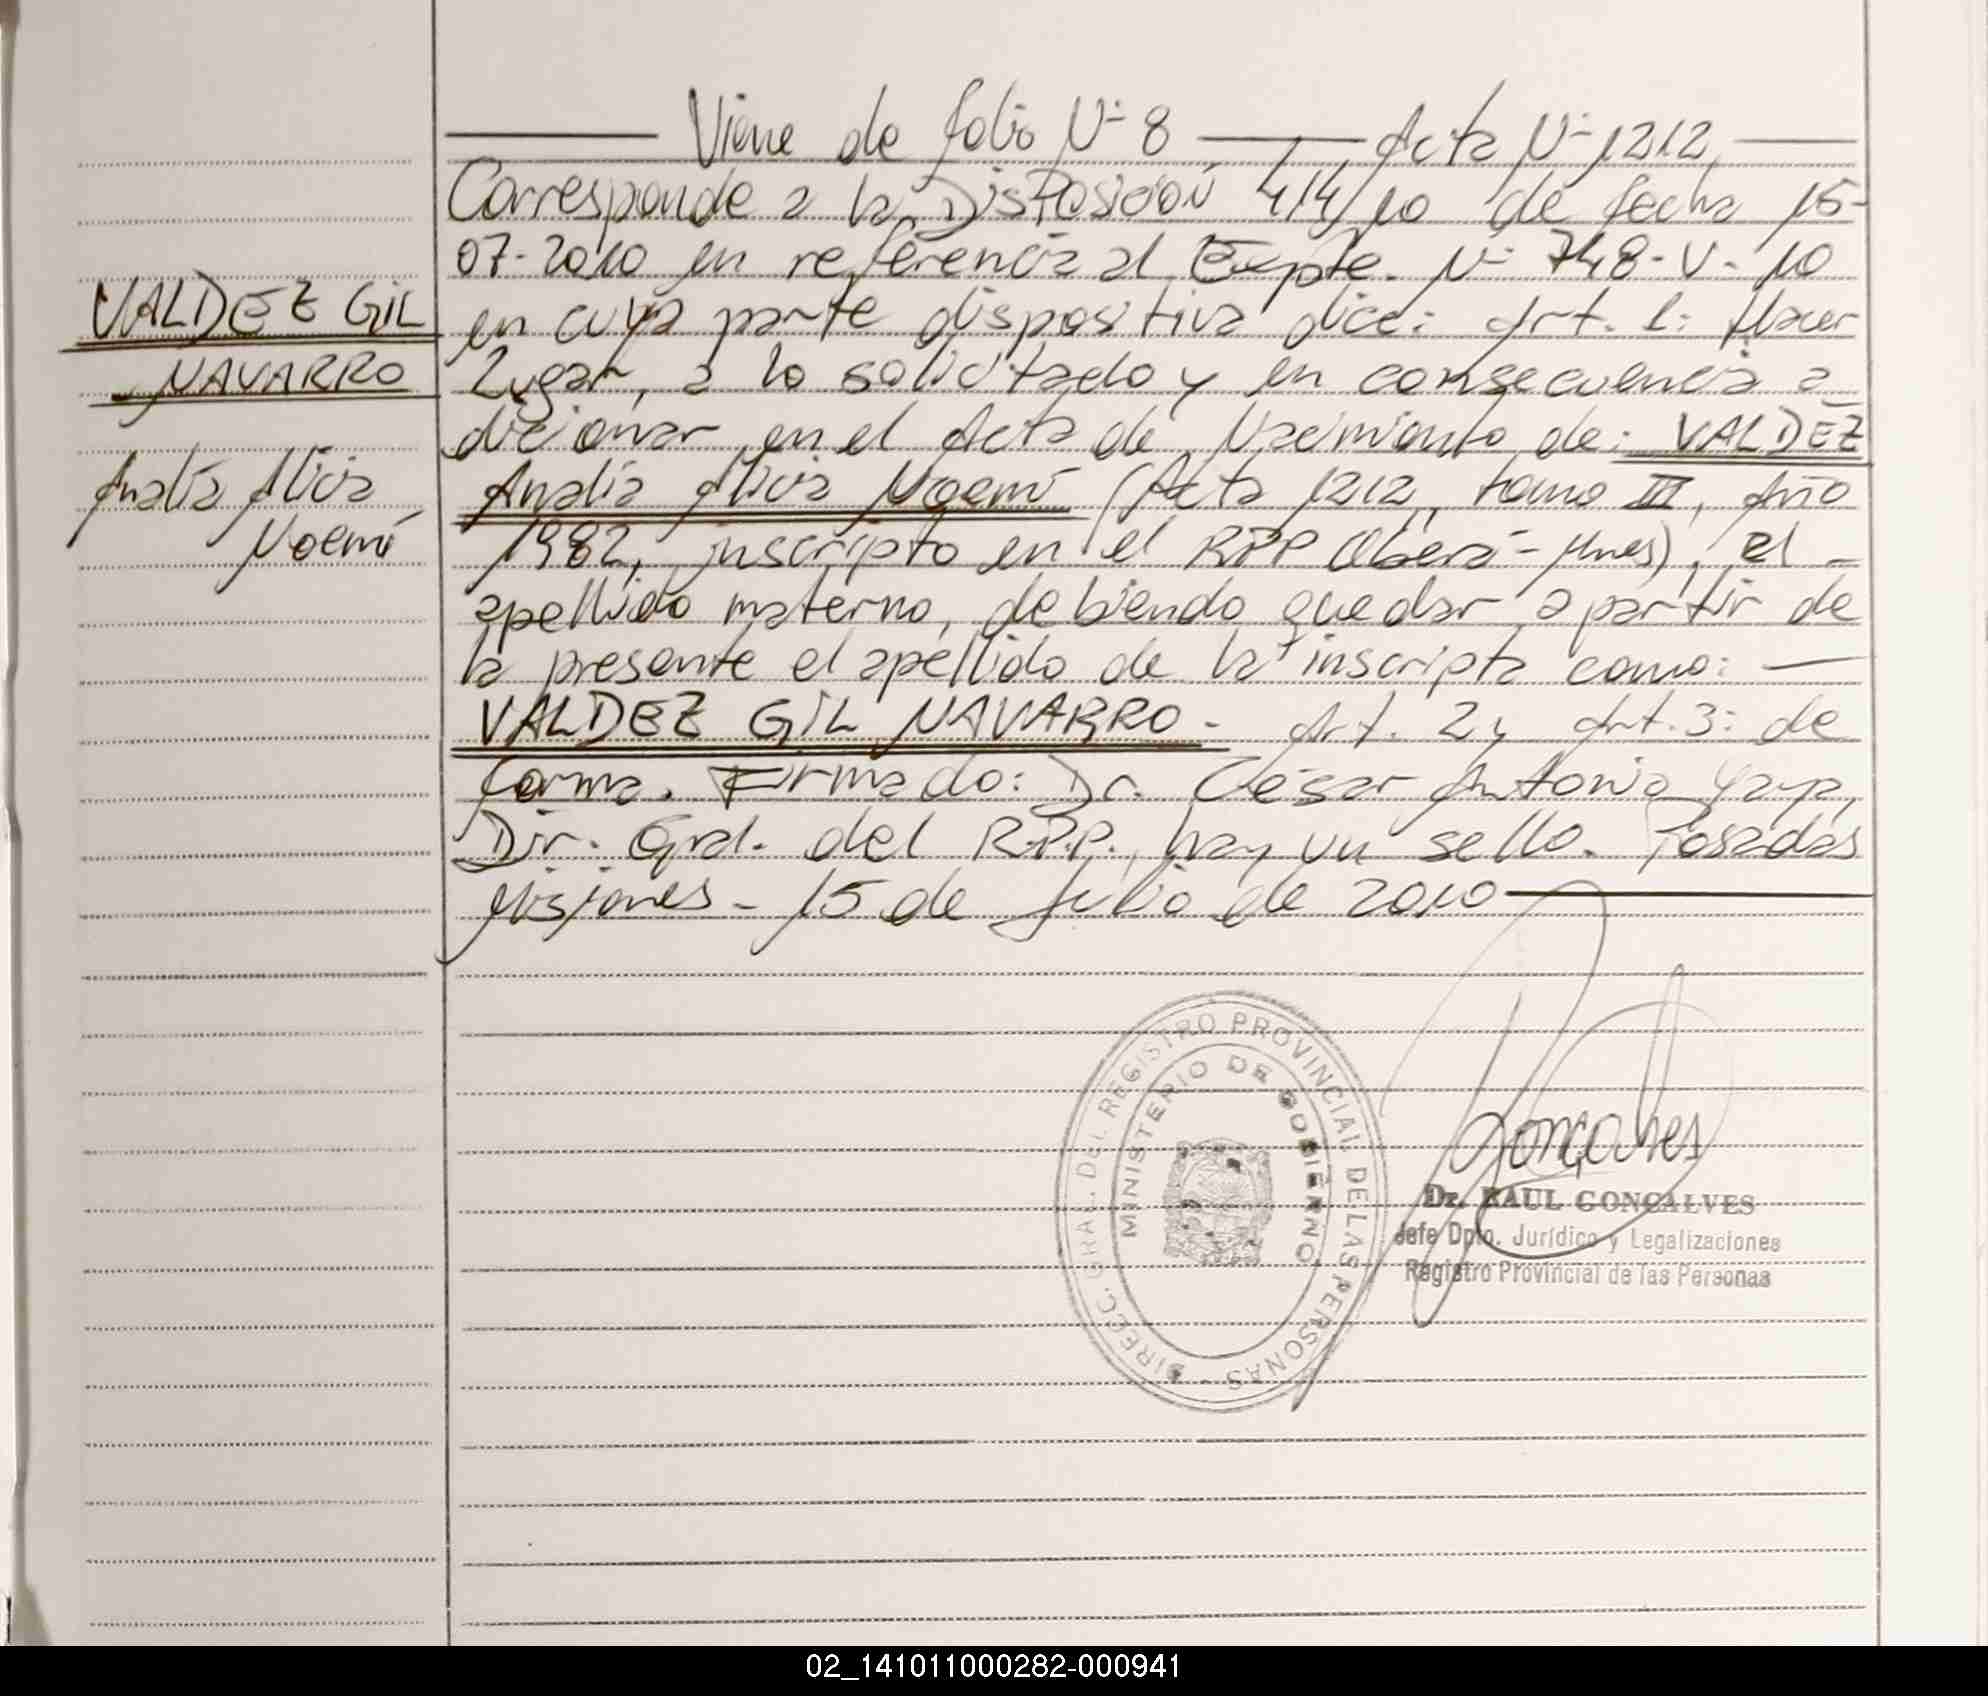 Viene de folio Nº 8 Acta Nº 1212
Corresponde a la Disposición 414/10 de fecha 15-
07-2010 en referencia al Expte. Nº 748-V-10
VALDEZ GIL
en cuya parte dispositiva dice: Art. 1: Hacer
NAVARRO
Lugar, a lo solicitado y en consecuencia a
dicionar en el Acta de Nacimiento de: VALDEZ
Analía Alicia
Analía Alicia Noemí (Acta 1212, tomo III, Año
Noemí
1982, inscripto en el RPP Oberá-Mnes), el -
apellido materno, debiendo quedar a partir de
la presente el apellido de la inscripta como:
VALDEZ GIL NAVARRO- Art. 2 y Art. 3: de
forma. Firmado: Dr. César Antonio Yaya,
Dir. Gral. del R.P.P., hay un sello. Posadas
Misiones - 15 de Julio de 2010
DIRECC. GRAL. DEL REGISTRO PROVINCIAL DE LAS PERSONAS -
MINISTERIO DE GOBIERNO
Gonçalves
Dr. RAUL GONÇALVES
Jefe Dpto. Jurídico y Legalizaciones
Registro Provincial de las Personas
02_141011000282-000941